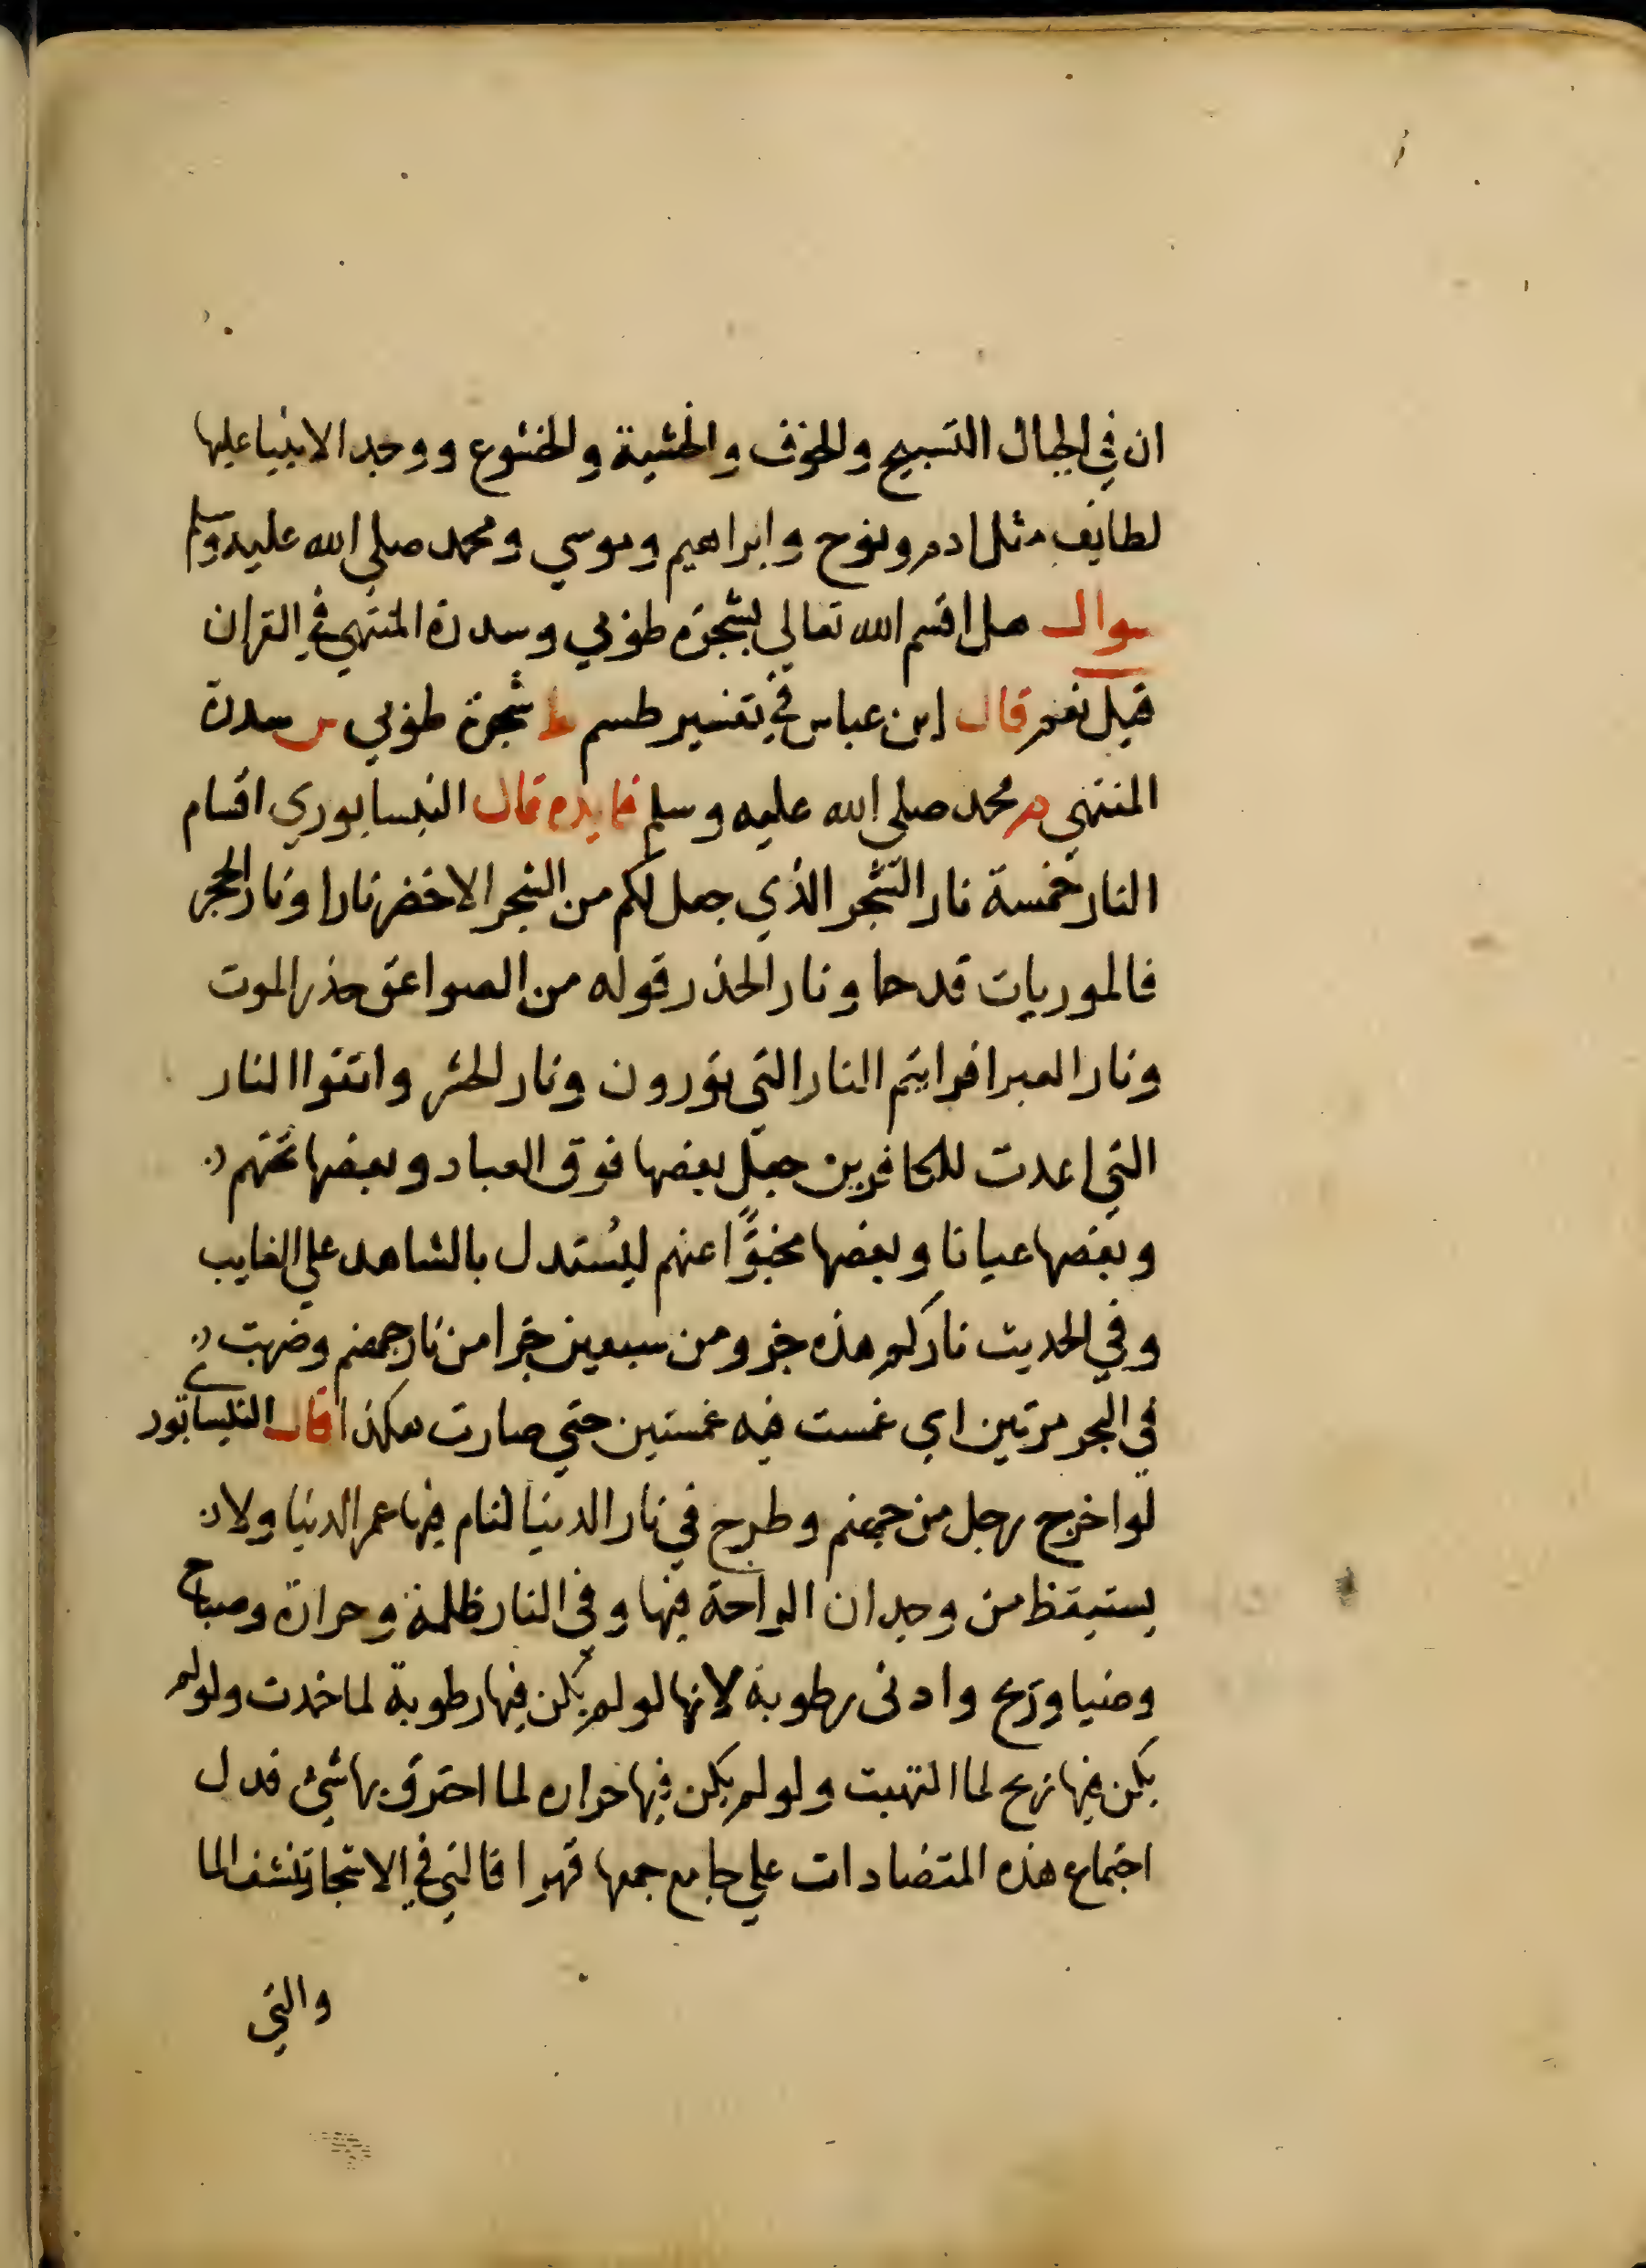 ان في الجبال التسبيح والخوف والخشية والخشوع ووجد الانبيا عليها
لطايف مثل ادم ونوح وابراهيم وموسي ومحمد صلي الله عليه وسلم
سوال هل اقسم الله تعالي بشجرة طوبي وسدرة المنتهي في القران
قيل نعم قال ابن عباس في تفسير طسم ط شجرة طوبي س سدرة
المنتهي م محمد صلي الله عليه وسلم فايدة قال النيسابوري اقسام
النار خمسة نار الشجر الذي جعل لكم من الشجر الاخضر نارا ونار الحجر
فالموريات قدحا ونار الحذر قوله من الصواعق حذر الموت
ونار العبر افرايتم النار التي تورون ونار الحشر واتقوا النار
التي اعدت للكافرين جعل بعضها فوق العباد وبعضها تحتهم
وبعضها عيانا وبعضها مخبوًّا عنهم ليُستدل بالشاهد علي الغايب
وفي الحديث ناركم هذه جزو من سبعين جزا من نار جهنم وضربت
في البحر مرتين اي غمست فيه غمستين حتي صارت هكذا قال النيسابوري
لو اخرج رجل من جهنم وطرح في نار الدنيا لنام فيها عمر الدنيا ولا
يستيقظ من وجدان الراحة فيها وفي النار ظلمة وحرارة ومباح
وضيا وريح وادني رطوبة لانها لو لم يكن فيها رطوبة لما خمدت ولو لم
يكن فيها ريح لما التهبت ولو لم يكن فيها حراره لما احترق بها شيئ فدل
اجتماع هذه المتضادات علي جامع جمعها قهرا فالتي في الاشجار تنشف الما
والتي